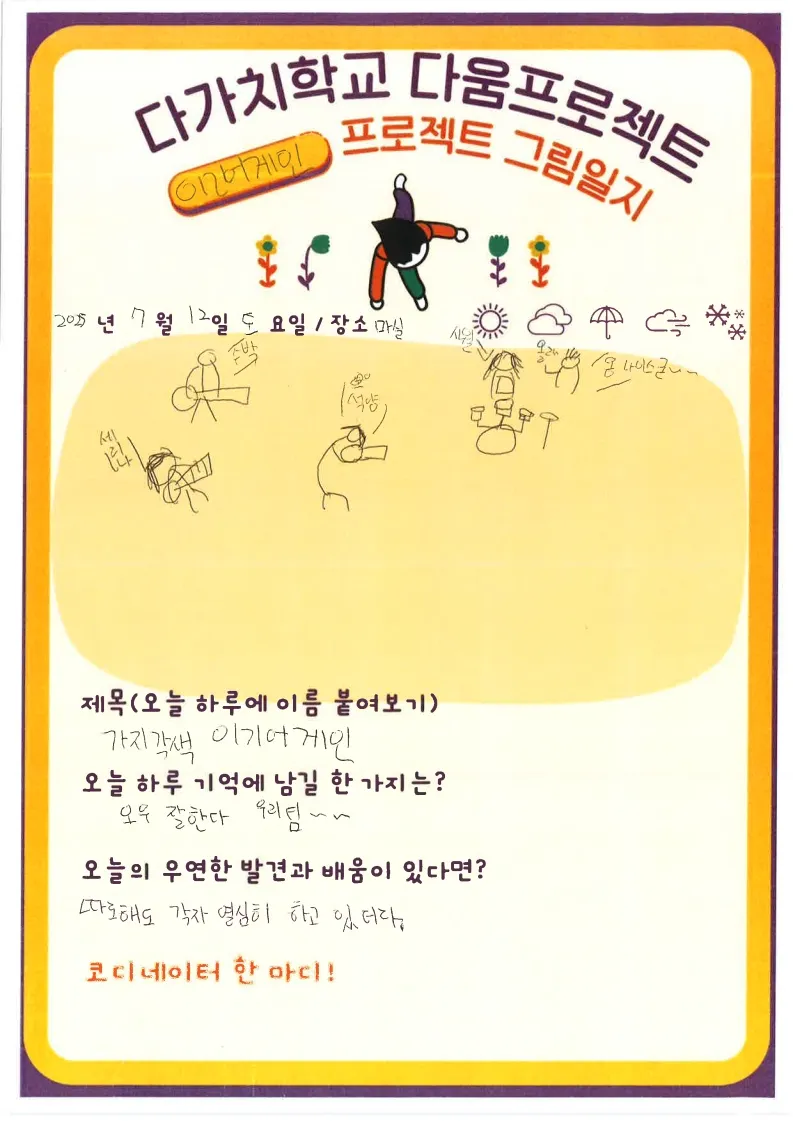 다가치학교 다움프로젝트
이기어게인 프로젝트 그림일지
2025년 7월 12일 토요일 / 장소 마실
수박
시월
올래
옹 나이스굿~~
석양
셀리나
제목(오늘 하루에 이름 붙여보기)
가지각색 이기어게인
오늘 하루 기억에 남길 한 가지는?
오우 잘한다 우리팀~~
오늘의 우연한 발견과 배움이 있다면?
따로해도 각자 열심히 하고 있더라.
코디네이터 한 마디!